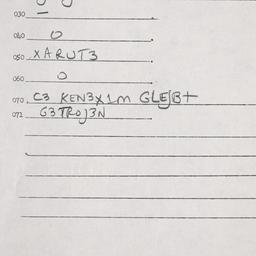 030 –
040 O
050 XARUT3
060 O
070 C3 KEN3X1M GLEJB+
071 G3TROJ3N